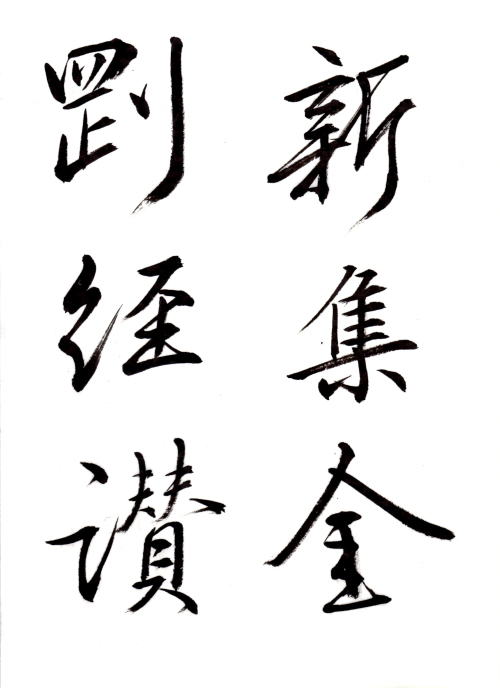 新集金
㓻経讃